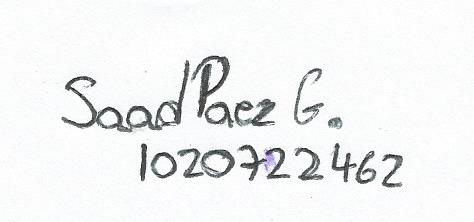 Saad Paez G.
1020722462